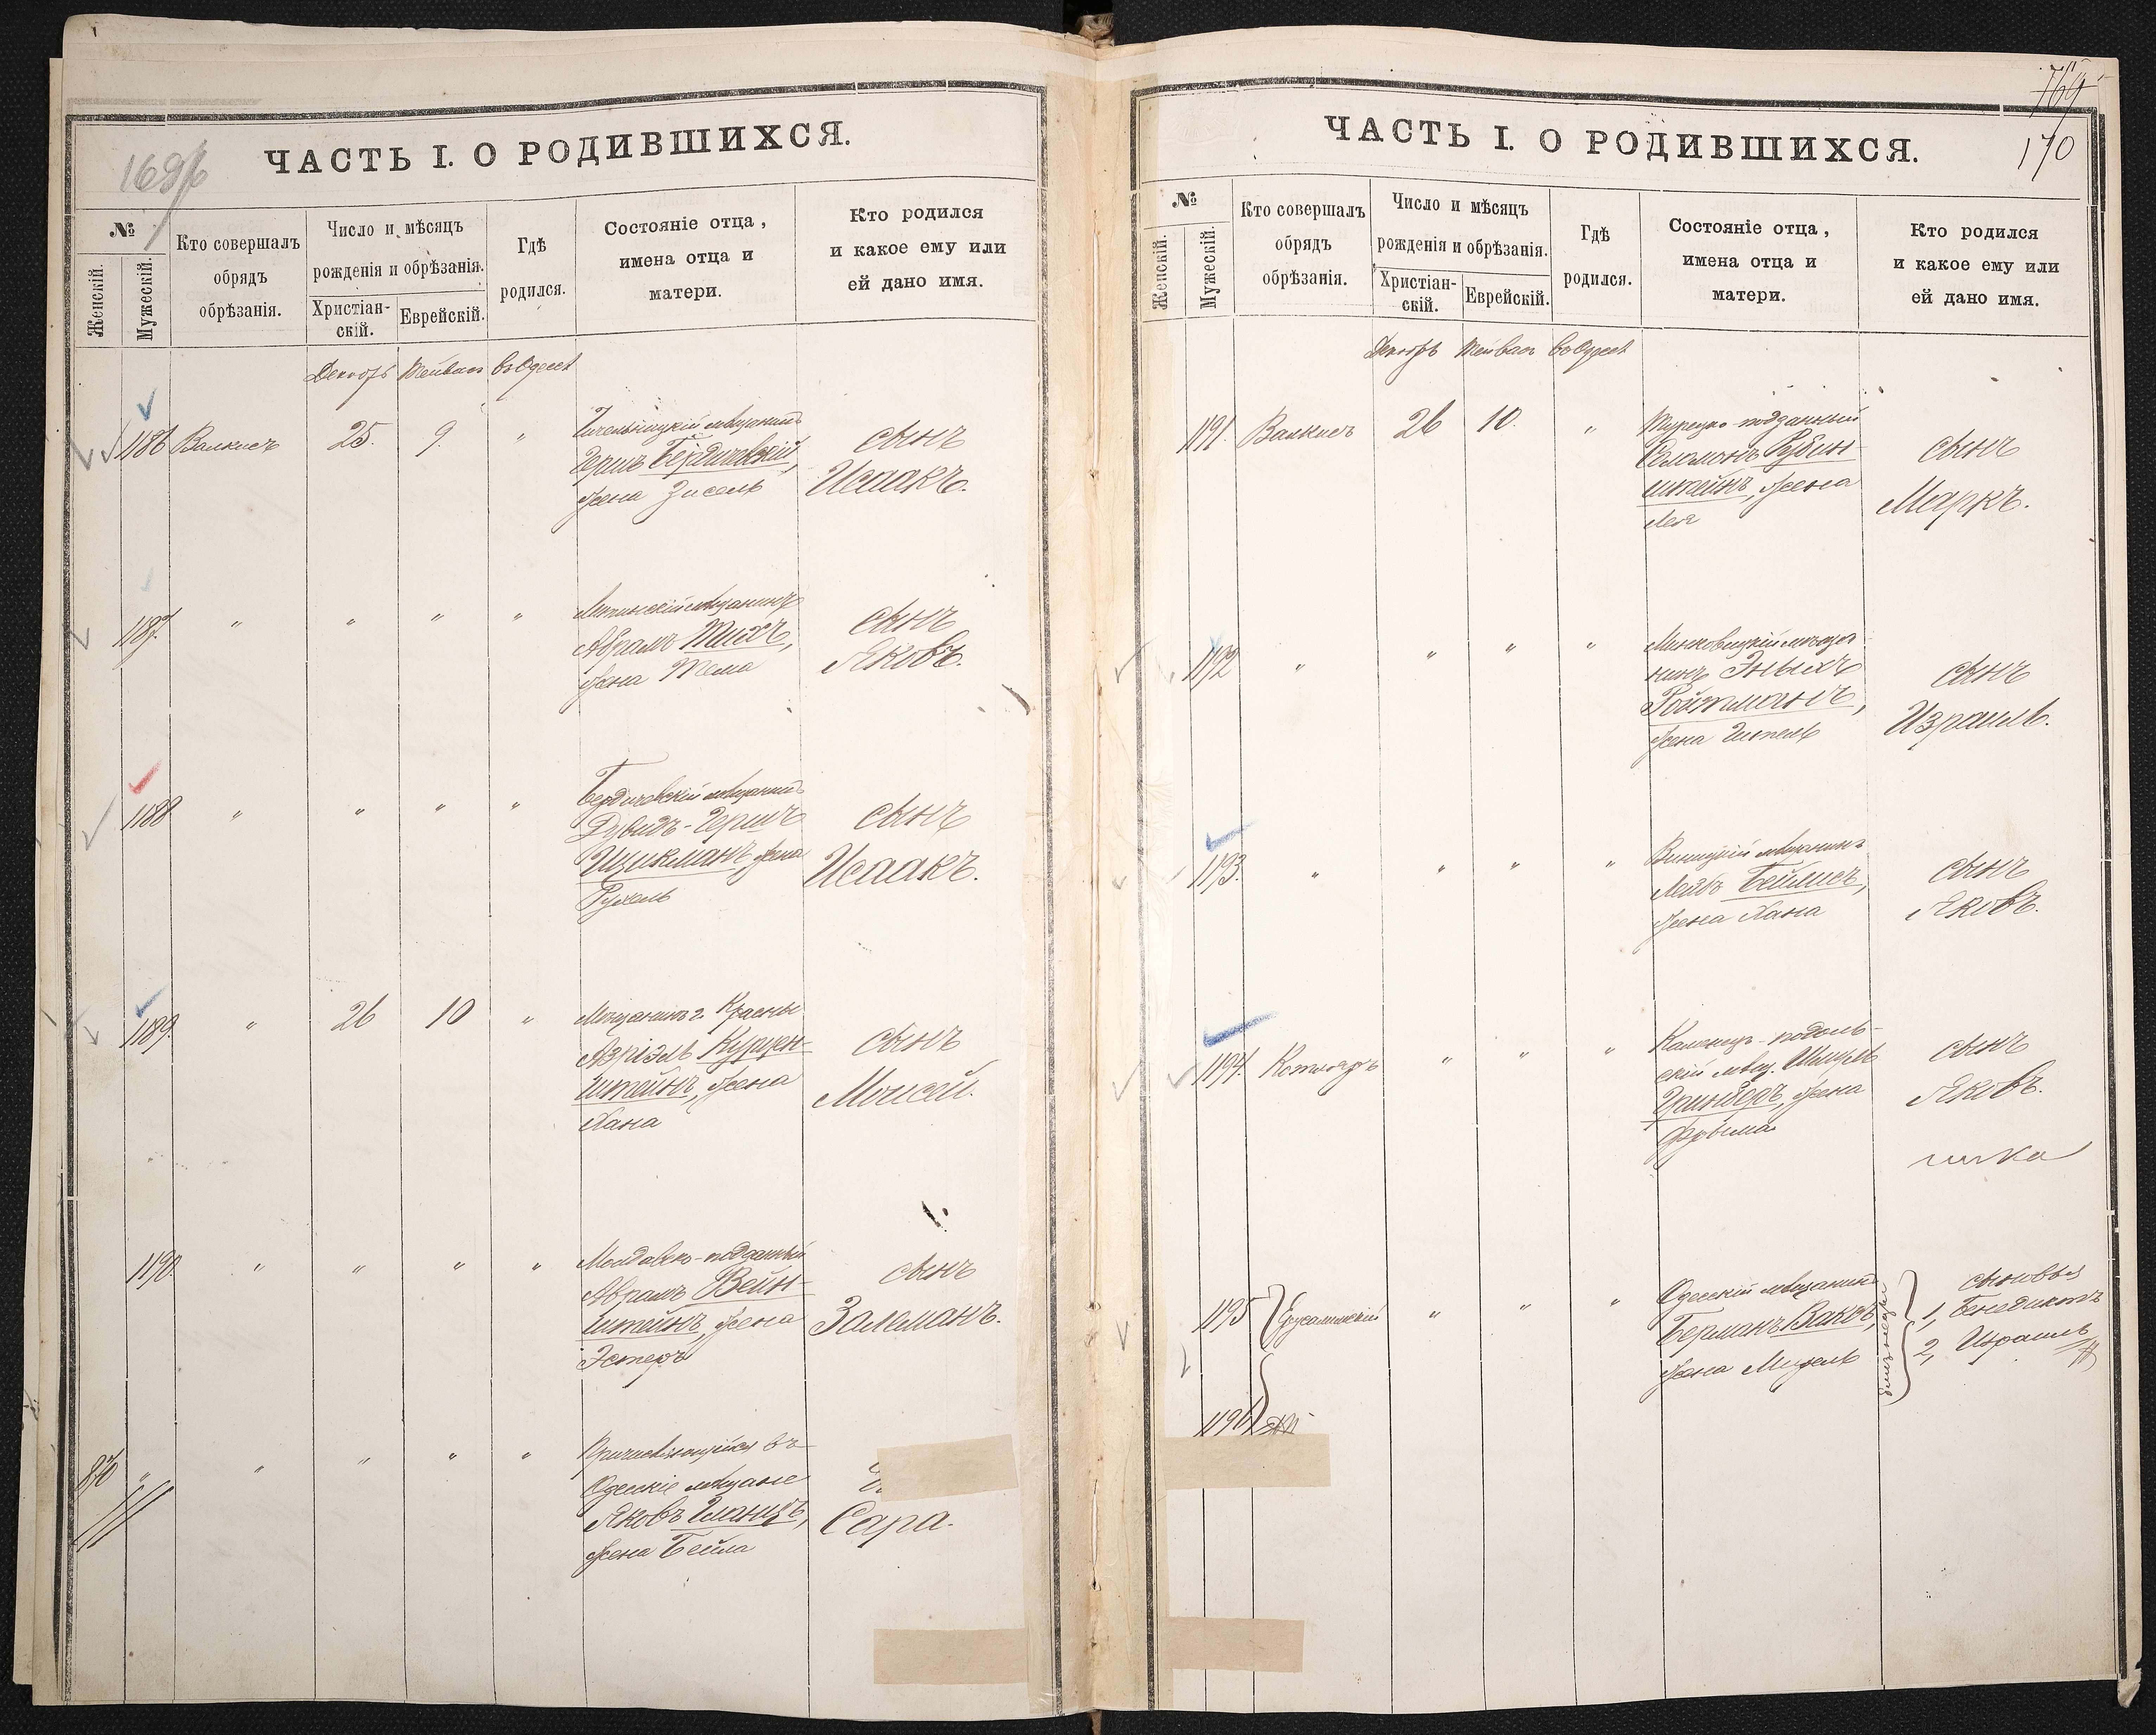 169
ЧАСТЬ I. О РОДИВШИХСЯ.
№
Женскій.
Мужескій.
Кто совершалъ
обрядъ
обрѣзанія.
Число и мѣсяцъ
рожденія и обрѣзанія.
Христіан-
скій.
Еврейскій.
Гдѣ
родился.
Состояніе отца,
имена отца и
матери.
Кто родился
и какое ему или
ей дано имя.
Декабрь Тейвас въ Одессѣ
1186 Валкисъ 25. 9. "
мѣщанинъ
Гершъ Бердичевскій,
жена Зисель
сынъ
Исаакъ.
1187. " " " "
Литинскій мѣщанинъ
Абрамъ Тихъ,
жена Тема
сынъ
Яковъ.
1188 " " " "
Бердичевскій мѣщанинъ
Дувидъ-Гершъ
Ицикманъ, жена
Рухель
сынъ
Исаакъ.
1189. " 26 10 "
Мѣщанинъ г. Красны
Азріэль Курцен-
штейнъ, жена
Хана
сынъ
Моисей.
1190. " " " "
Молдавско-подданный
Абрамъ Вейн-
штейнъ, жена
Эстеръ
сынъ
Залманъ.
870 " " " " "
Причисляющійся въ
Одесскіе мѣщане
Яковъ Гланцъ,
жена Бейла
Сара.
769
170
ЧАСТЬ I. О РОДИВШИХСЯ.
№
Женскій.
Мужескій.
Кто совершалъ
обрядъ
обрѣзанія.
Число и мѣсяцъ
рожденія и обрѣзанія.
Христіан-
скій.
Еврейскій.
Гдѣ
родился.
Состояніе отца,
имена отца и
матери.
Кто родился
и какое ему или
ей дано имя.
Декабрь Тейвас въ Одессѣ
1191. Валкисъ 26 10. "
Турецко-подданный
Соломонъ Рубин-
штейнъ, жена
Лея
сынъ
Маркъ.
1192 " " " "
Миньковецкій мѣща-
нинъ Эныхъ
Ройтманъ,
жена
сынъ
Израиль.
1193. " " " "
мѣщанинъ
Лейбъ Бейлисъ,
жена Хана
сынъ
Яковъ.
1194. Котляръ " " "
Каменецъ-подоль-
скій мѣщ. Шмуль
Гринбергъ, жена
Фрыма
сынъ
Яковъ.
1195 Ерусалимскій " " "
Одесскій мѣщанинъ
Берманъ Ваксъ,
жена
близнецы
сыновья
1, Бенедиктъ
2, Израиль
1196